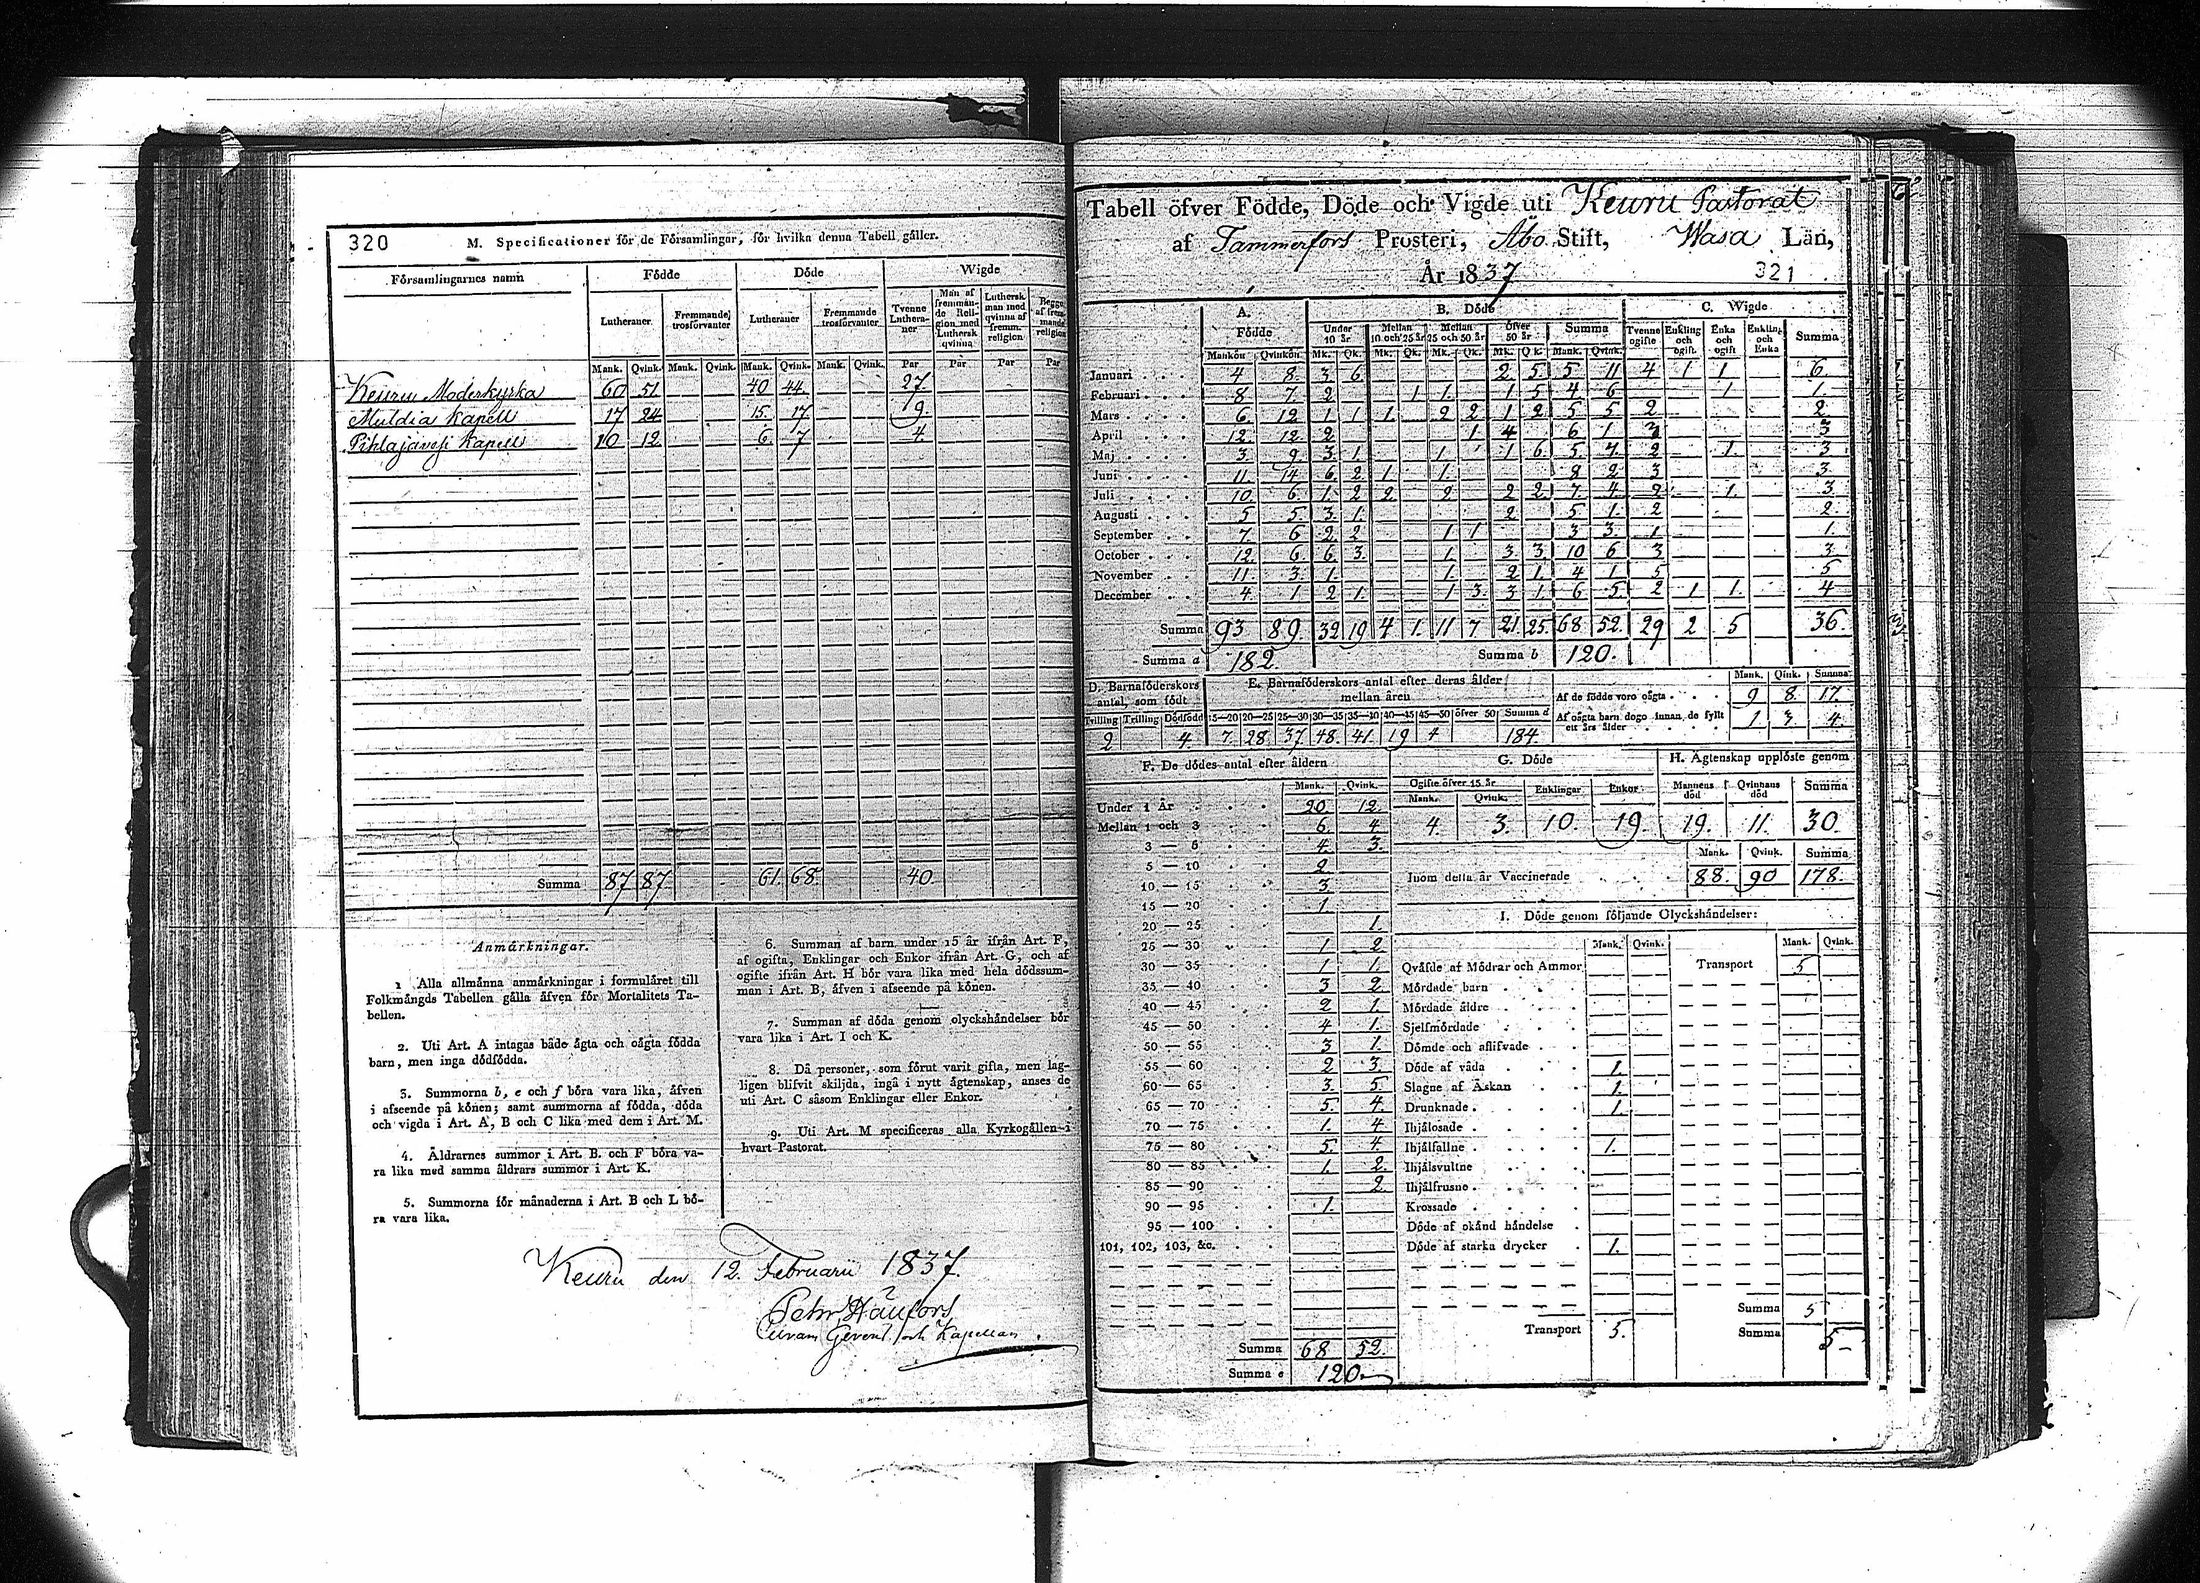 320
M. Specificationer för de Församlingar, för hvilka denna Tabell gäller.
Församlingarnes namn Födde Döde Wigde
Lutheraner Fremmande trosförvanter Lutheraner Fremmande trosförvanter Tvenne Lutheraner Man af fremmande Religion med Luthersk qvinna Luthersk man med qvinna af fremm. religion Begge af fremmande religion
Mank. Qvink. Mank. Qvink. Mank. Qvink. Mank. Qvink. Par Par Par Par
Keuru Moderkyrka 60 51. 40 44. 27.
Muldia Kapell 17 24 15. 17. 9.
Pihlajavesi Kapell 10 12. 6. 7 4.
Summa 87 87 61. 68. 40.
Anmärkningar.
1 Alla allmänna anmärkningar i formuläret till
Folkmängds Tabellen gälla äfven för Mortalitets Ta-
bellen.
2. Uti Art. A intagas både ägta och oägta födda
barn, men inga dödfödda.
3. Summorna b, e och f böra vara lika, äfven
i afseende på könen; samt summorna af födda, döda
och vigda i Art. A, B och C lika med dem i Art. M.
4. Åldrarnes summor i Art. B. och F böra va-
ra lika med samma åldrars summor i Art. K.
5. Summorna för månaderna i Art. B och L bö-
ra vara lika.
6. Summan af barn under 15 år ifrån Art. F,
af ogifta, Enklingar och Enkor ifrån Art. G, och af
ogifte ifrån Art. H bör vara lika med hela dödssum-
man i Art. B, äfven i afseende på könen.
7. Summan af döda genom olyckshändelser bör
vara lika i Art. I och K.
8. Då personer, som förut varit gifta, men lag-
ligen blifvit skiljda, ingå i nytt ägtenskap, anses de
uti Art. C såsom Enklingar eller Enkor.
9. Uti Art. M specificeras alla Kyrkogällen i
hvart Pastorat.
Keuru den 12. Februarii 1837.
Kapellan.
Tabell öfver Födde, Döde och Vigde uti Keuru Pastorat
af Tammerfors Prosteri, Åbo Stift, Wasa Län,
År 1837 321
A. Födde B. Döde C. Wigde
Under 10 år Mellan 10 och 25 år Mellan 25 och 50 år öfver 50 år Summa Tvenne ogifte Enkling och ogift Enka och ogift Enkling och Enka Summa
Mankön Qvinkön Mk. Qk. Mk. Qk. Mk. Qk. Mk. Qk. Mank. Qvink.
Januari 4 8 3 6 2 5 5 11 4 1 1. 6.
Februari 8 7. 2 1 1. 1 5 4 6 1 1.
Mars 6 12 1 1 1. 2 2 1 2 5 5 2 2
April 12. 12 2 1 4 6 1 3 3
Maj 3 9. 3 1. 1. 1 6 5 7. 2 1. 3
Juni 11. 14 6 2 1 1. 8 2 3 3.
Juli 10. 6 1. 2 2. 2 2 2 7. 4 2 1. 3.
Augusti 5 5. 3 1. 2 5 1. 2 2.
September 7. 6 2 2 1 1 3 3. 1 1.
October 12. 6 6 3. 1. 3 3 10 6 3 3.
November 11. 3. 1. 1. 2 1. 4 1 5 5
December 4 1 2 1. 1 3. 3 1. 6 5 2 1 1. 4
Summa 93. 89. 32 19 4 1. 11 7 21. 25. 68. 52. 29 2 5 36.
Summa a 182. Summa b 120.
D. Barnaföderskors antal, som födt
Tvilling Trilling Dödfödd
2 4.
E. Barnaföderskors antal efter deras ålder mellan åren
15—20 20—25 25—30 30—35 35—40 40—45 45—50 öfver 50 Summa d
7. 28. 37 48. 41. 19 4 184.
Mank. Qink. Summa
Af de födde voro oägta 9 8. 17.
Af oägta barn dogo innan de fyllt ett års ålder 1 3. 4.
F. De dödes antal efter åldern
Mank. Qvink.
Under 1 År 20 12.
Mellan 1 och 3 6. 4
3 — 5 4. 3.
5 — 10 2.
10 — 15 3.
15 — 20 1.
20 — 25 1.
25 — 30 1 2
30 — 35 1 1.
35 — 40 3 2.
40 — 45 2 1.
45 — 50 4 1.
50 — 55 3 1.
55 — 60 2 3.
60 — 65 3. 5.
65 — 70 5. 4.
70 — 75 1. 4
75 — 80 5. 4.
80 — 85 1. 2.
85 — 90 2.
90 — 95 1.
95 — 100
101, 102, 103, &c.
Summa 68 52.
Summa e 120
G. Döde
Ogifte öfver 15 år Enklingar Enkor
Mank. Qvink.
4. 3. 10. 19.
H. Ägtenskap upplöste genom
Mannens död Qvinnans död Summa
19. 11. 30.
Mank. Qvink. Summa
Inom detta år Vaccinerade 88. 90 178.
I. Döde genom följande Olyckshändelser:
Mank. Qvink. Mank. Qvink.
Qväfde af Mödrar och Ammor Transport 5
Mördade barn
Mördade äldre
Sjelfmördade
Dömde och aflifvade
Döde af våda 1.
Slagne af Åskan 1.
Drunknade 1.
Ihjälosade
Ihjälfallne 1.
Ihjälsvultne
Ihjälfrusne
Krossade
Döde af okänd händelse
Döde af starka drycker 1.
Summa 5
Transport 5. Summa 5